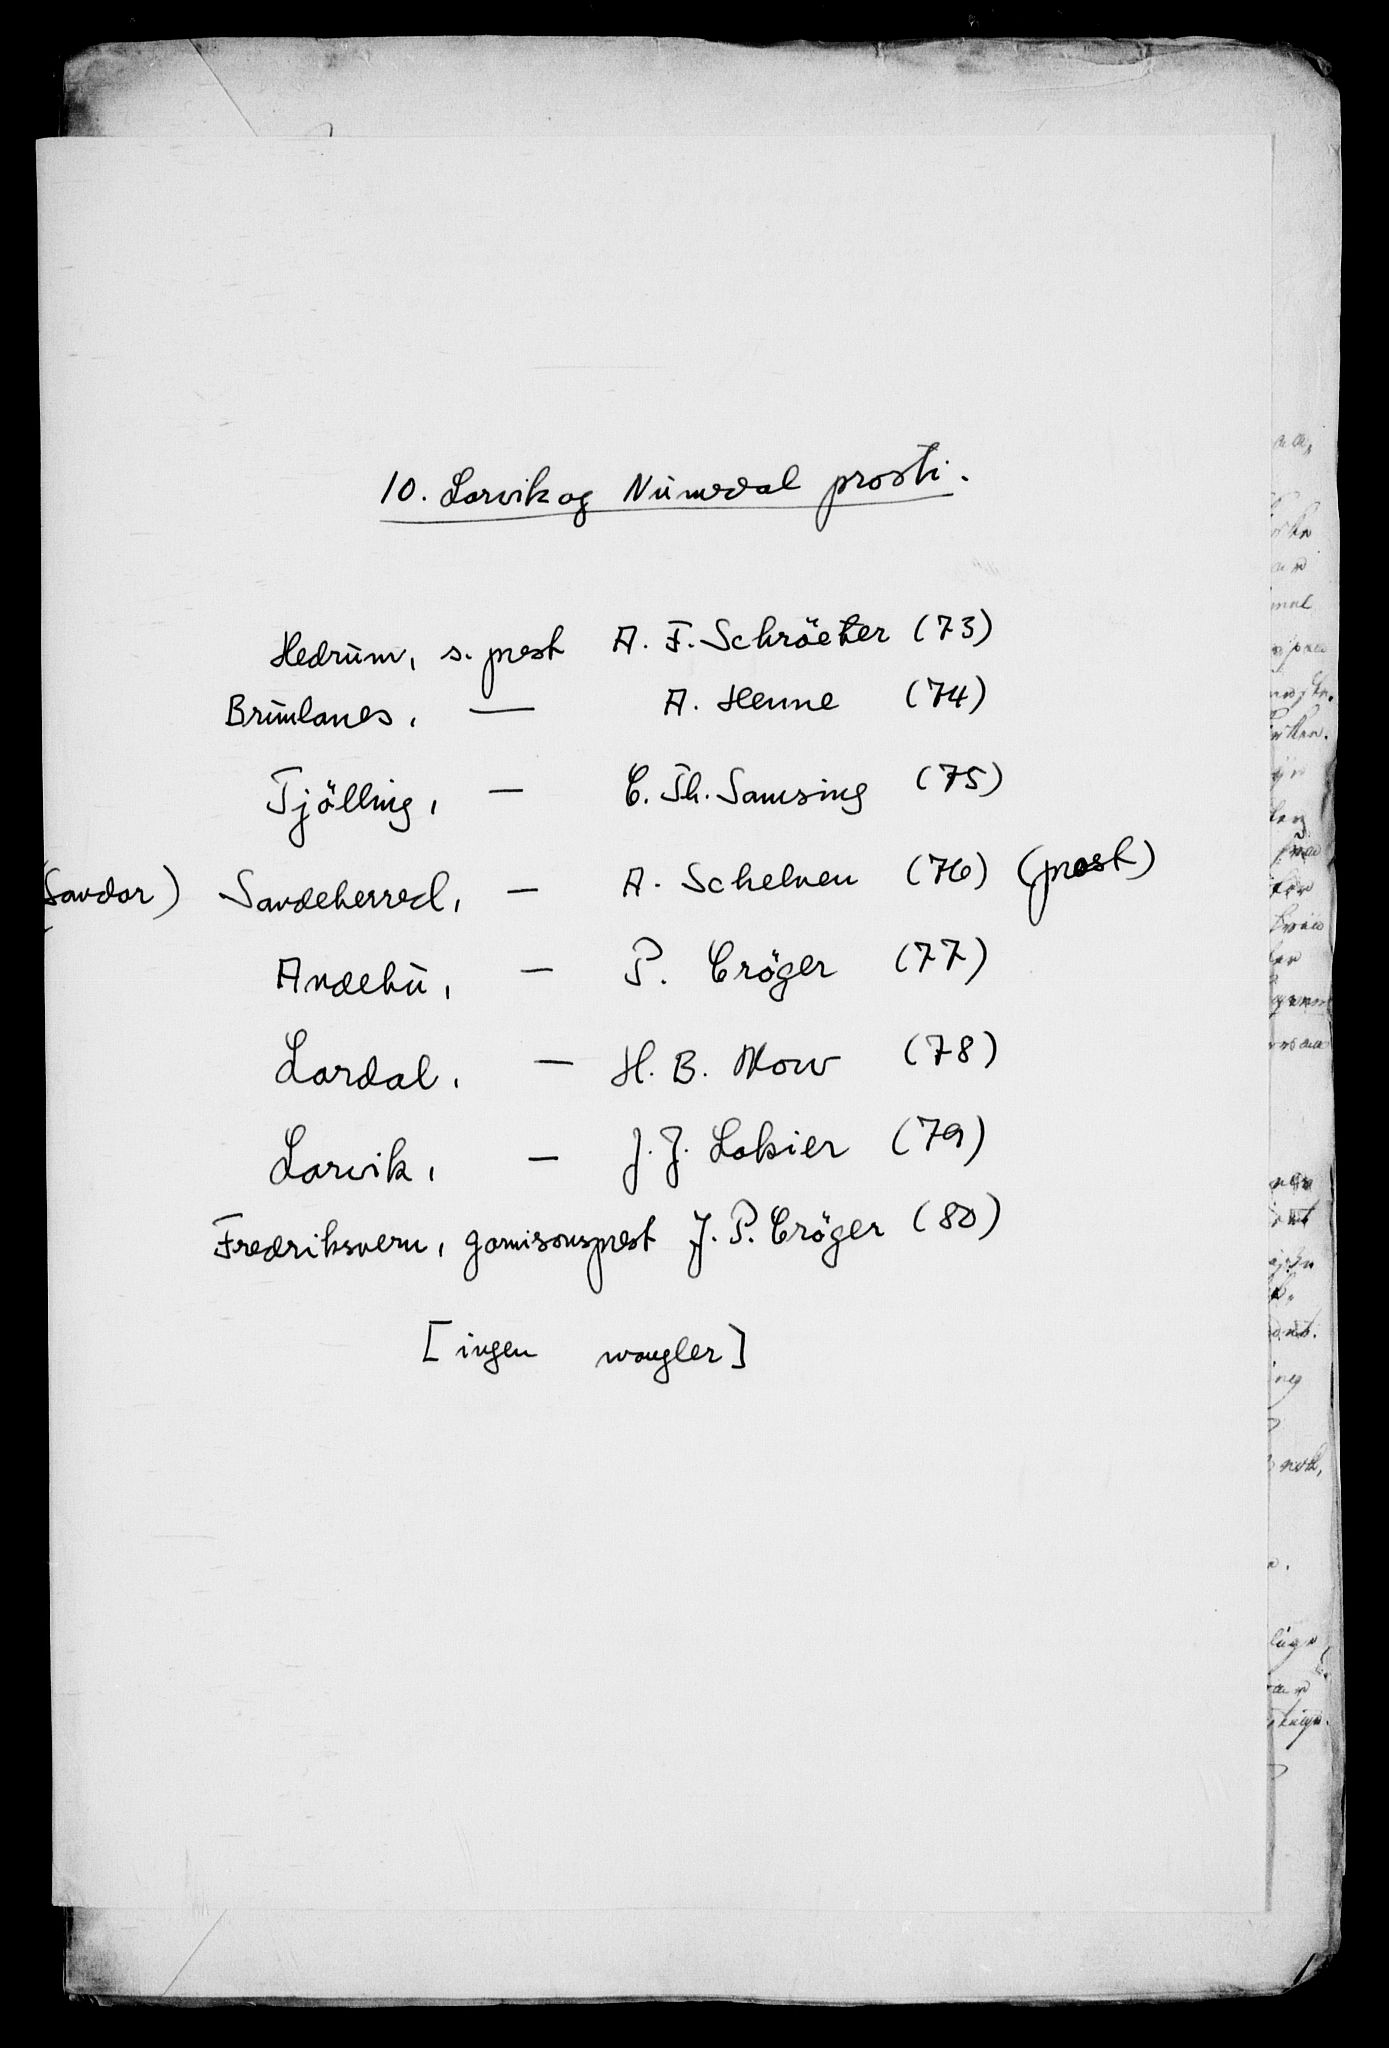 10. Larvik og Numedal prosti.
Hedrum, s. prest A. F. Schröeter (73)
Brunlanes, — A. Henne (74)
Tjölling, — C. Th. Samsing (75)
(Sandar) Sandeherred, — A. Schelven (76) (prost)
Andebu, — P. Cröger (77)
Lardal, — H. B. (78)
Larvik, — J. J. Lakier (79)
Fredriksvern, garnisonsprest J. P. Cröger (80)
[ingen mangler]